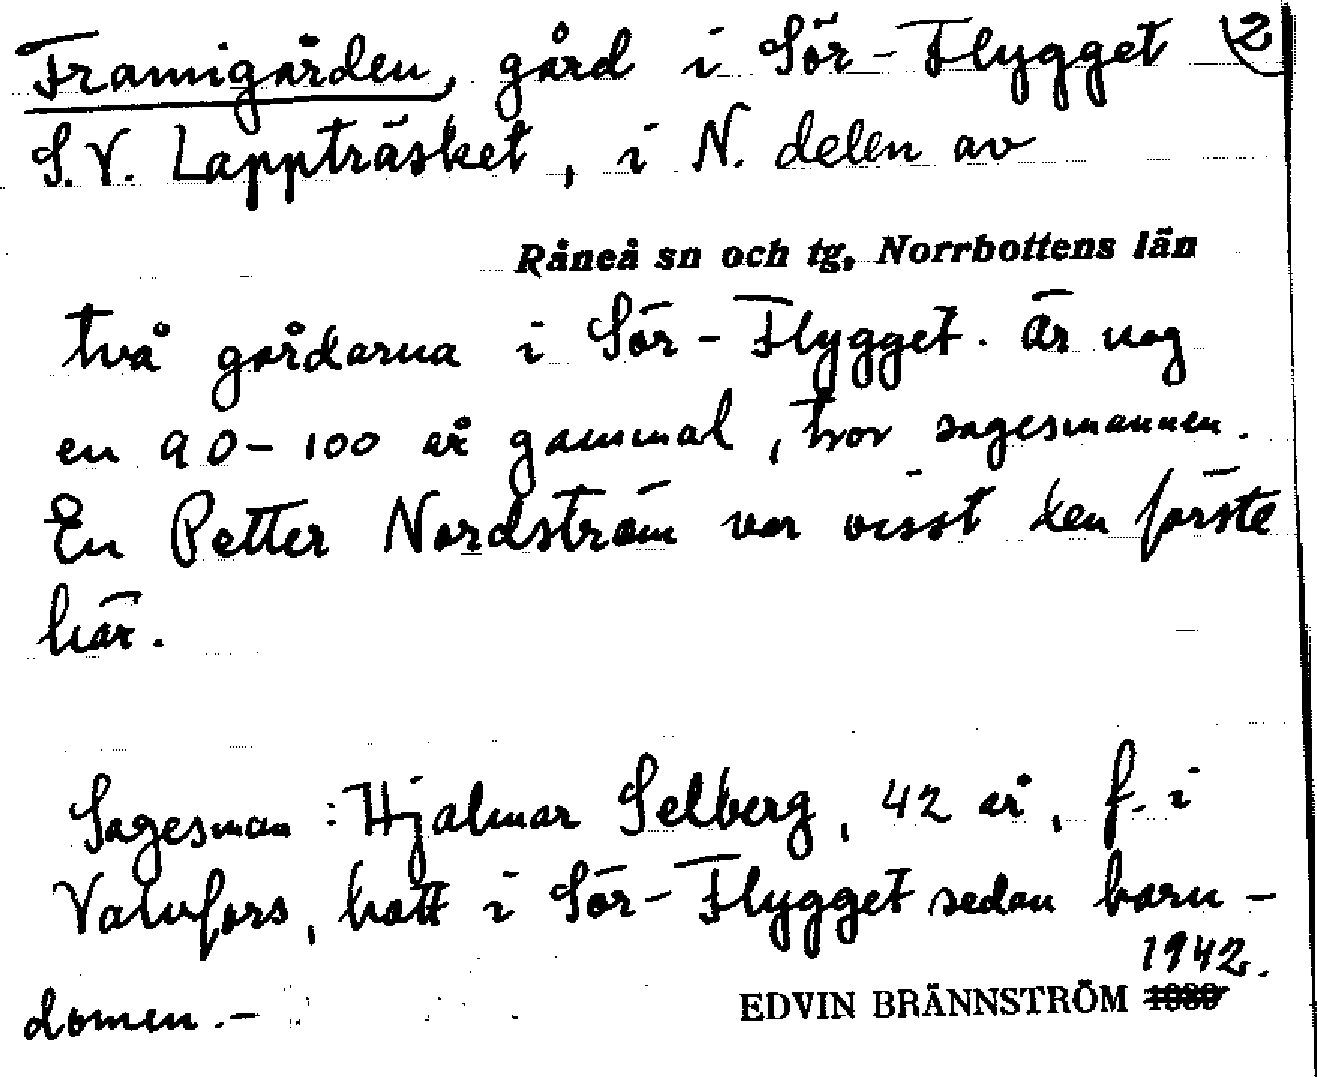 Framigården, gård i Sör-Flygget 2
S.V. Lappträsket, i N. delen av
Råneå sn och tg, Norrbottens län
två gårdarna i Sör-Flygget. Är nog
en 90-100 år gammal, tror sagesmannen.
En Petter Nordström var visst den förste
här.
Sagesman: Hjalmar Selberg, 42 år, f. i
Valvfors, bott i Sör-Flygget sedan barn-
1942.
domen.-
EDVIN BRÄNNSTRÖM